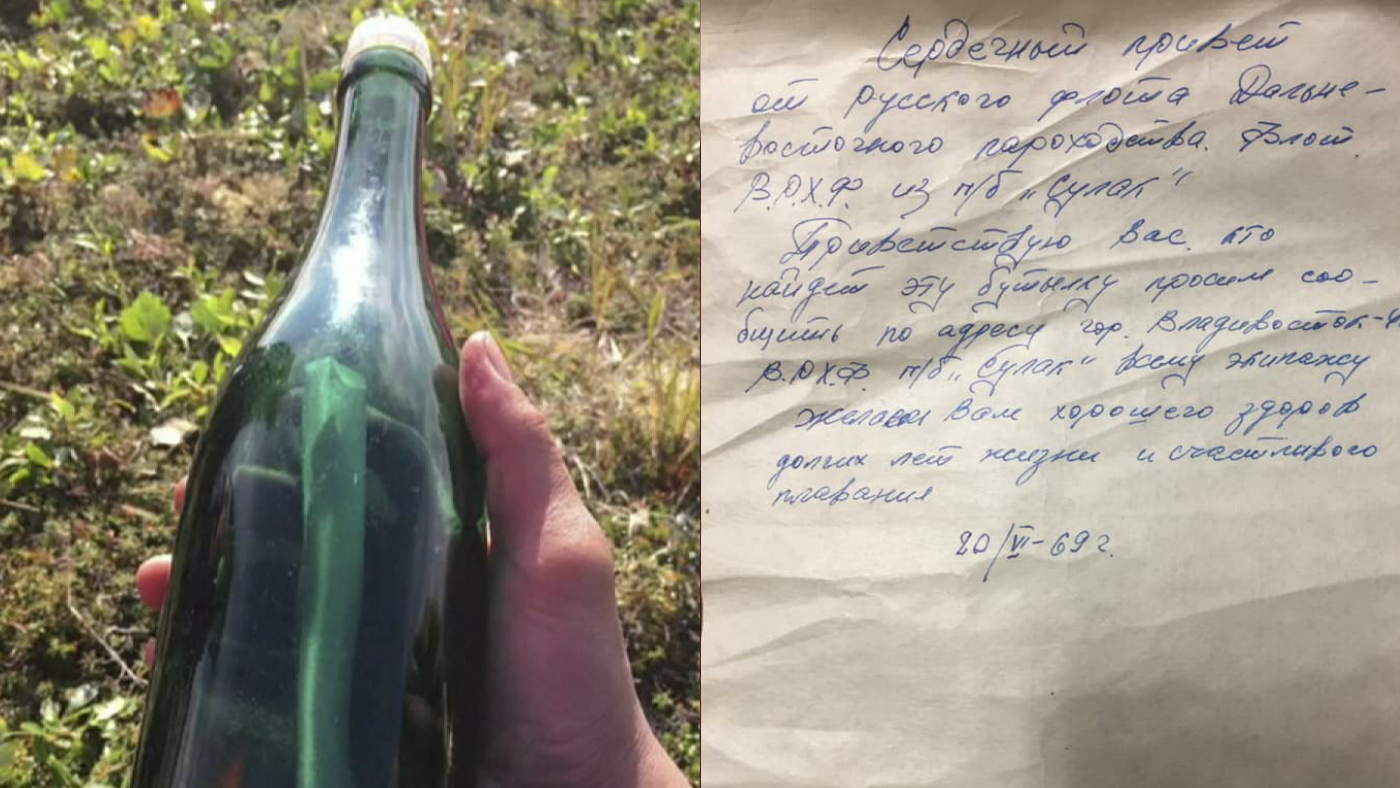 Сердечный привет
от русского флота Дальне-
восточного пароходства. Флот.
В.О.Х.Ф. из п/б „Сулак"
Приветствую Вас. кто
найдет эту бутылку просим соо-
бщить по адресу гор. Владивосток-
В.О.Х.Ф. п/б „Сулак" экипажу
желаем Вам хорошего здоров
долгих лет жизни и счастливого
плавания
20/VI-69 г.